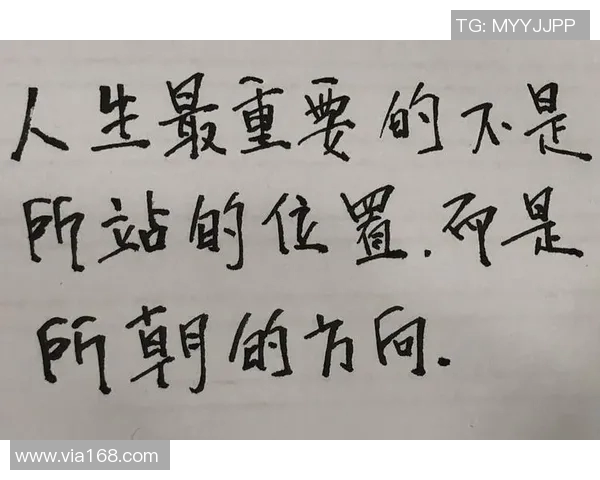 TG: MYYJJPP
人生最重要的不是
所站的位置.而是
所朝的方向.
www.via168.com